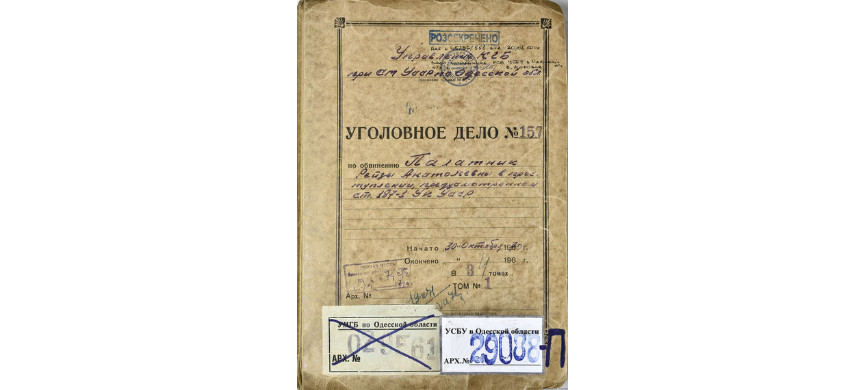 РОЗСЕКРЕЧЕНО
Управление КГБ
при СМ УССР по Одесской обл
УГОЛОВНОЕ ДЕЛО № 157
по обвинению Палатник
Рейзы Анатольевны в прес-
туплении, предусмотренном
ст. 187-1 УК УССР
Начато 30 Октября
Окончено " 196 г.
В томах
ТОМ № 1
Арх. №
УМГБ по Одесской области
АРХ. №
УСБУ в Одесской области
АРХ.№ 29038-П